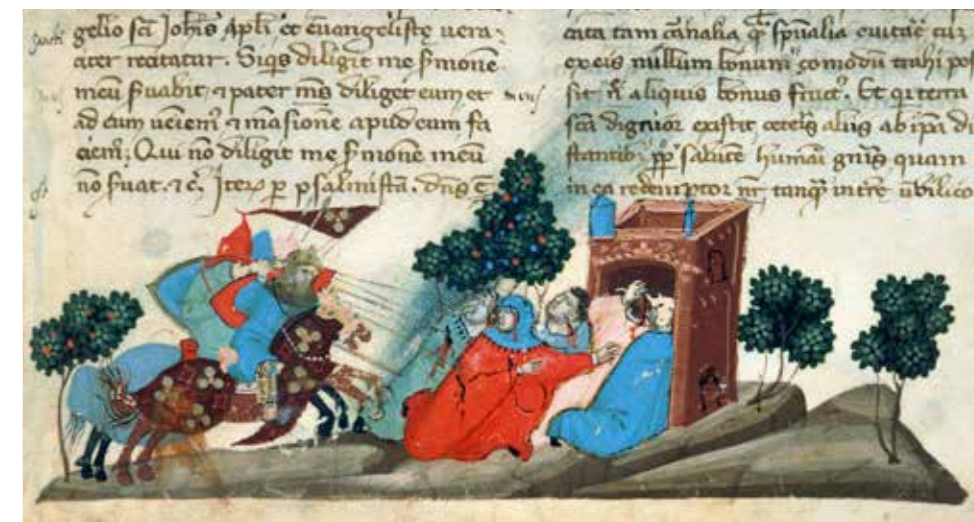 gelio sc̄i Joh̄is Apl̄i et euangeliste uera:
recitatur. Siq̄s diligit me s̄mone
meū s̄uabit, ⁊ pater m̄s diliget eum et
ad eum ueiem᷒ ⁊ māsione apud eum fa
ciem᷒; Qui nō diligit me s̄mone meū
nō s̄uat. ⁊ c̄. Iterꝫ p psalmistā. dn̄s ē
tam cānalia q̄ sp̄ualia cuꝫ
ex eis nullum bonum ꝯmodū trahi pos
sit n̄ aliquis bonus fruct᷒. Et qr terra
sc̄a dignior existit ceteis aliis ab ipa di
stantib᷒ pp̄ salutē humāi gn̄is quam
in ea redemptor nr̄ tanq̄ in terre ūbilico